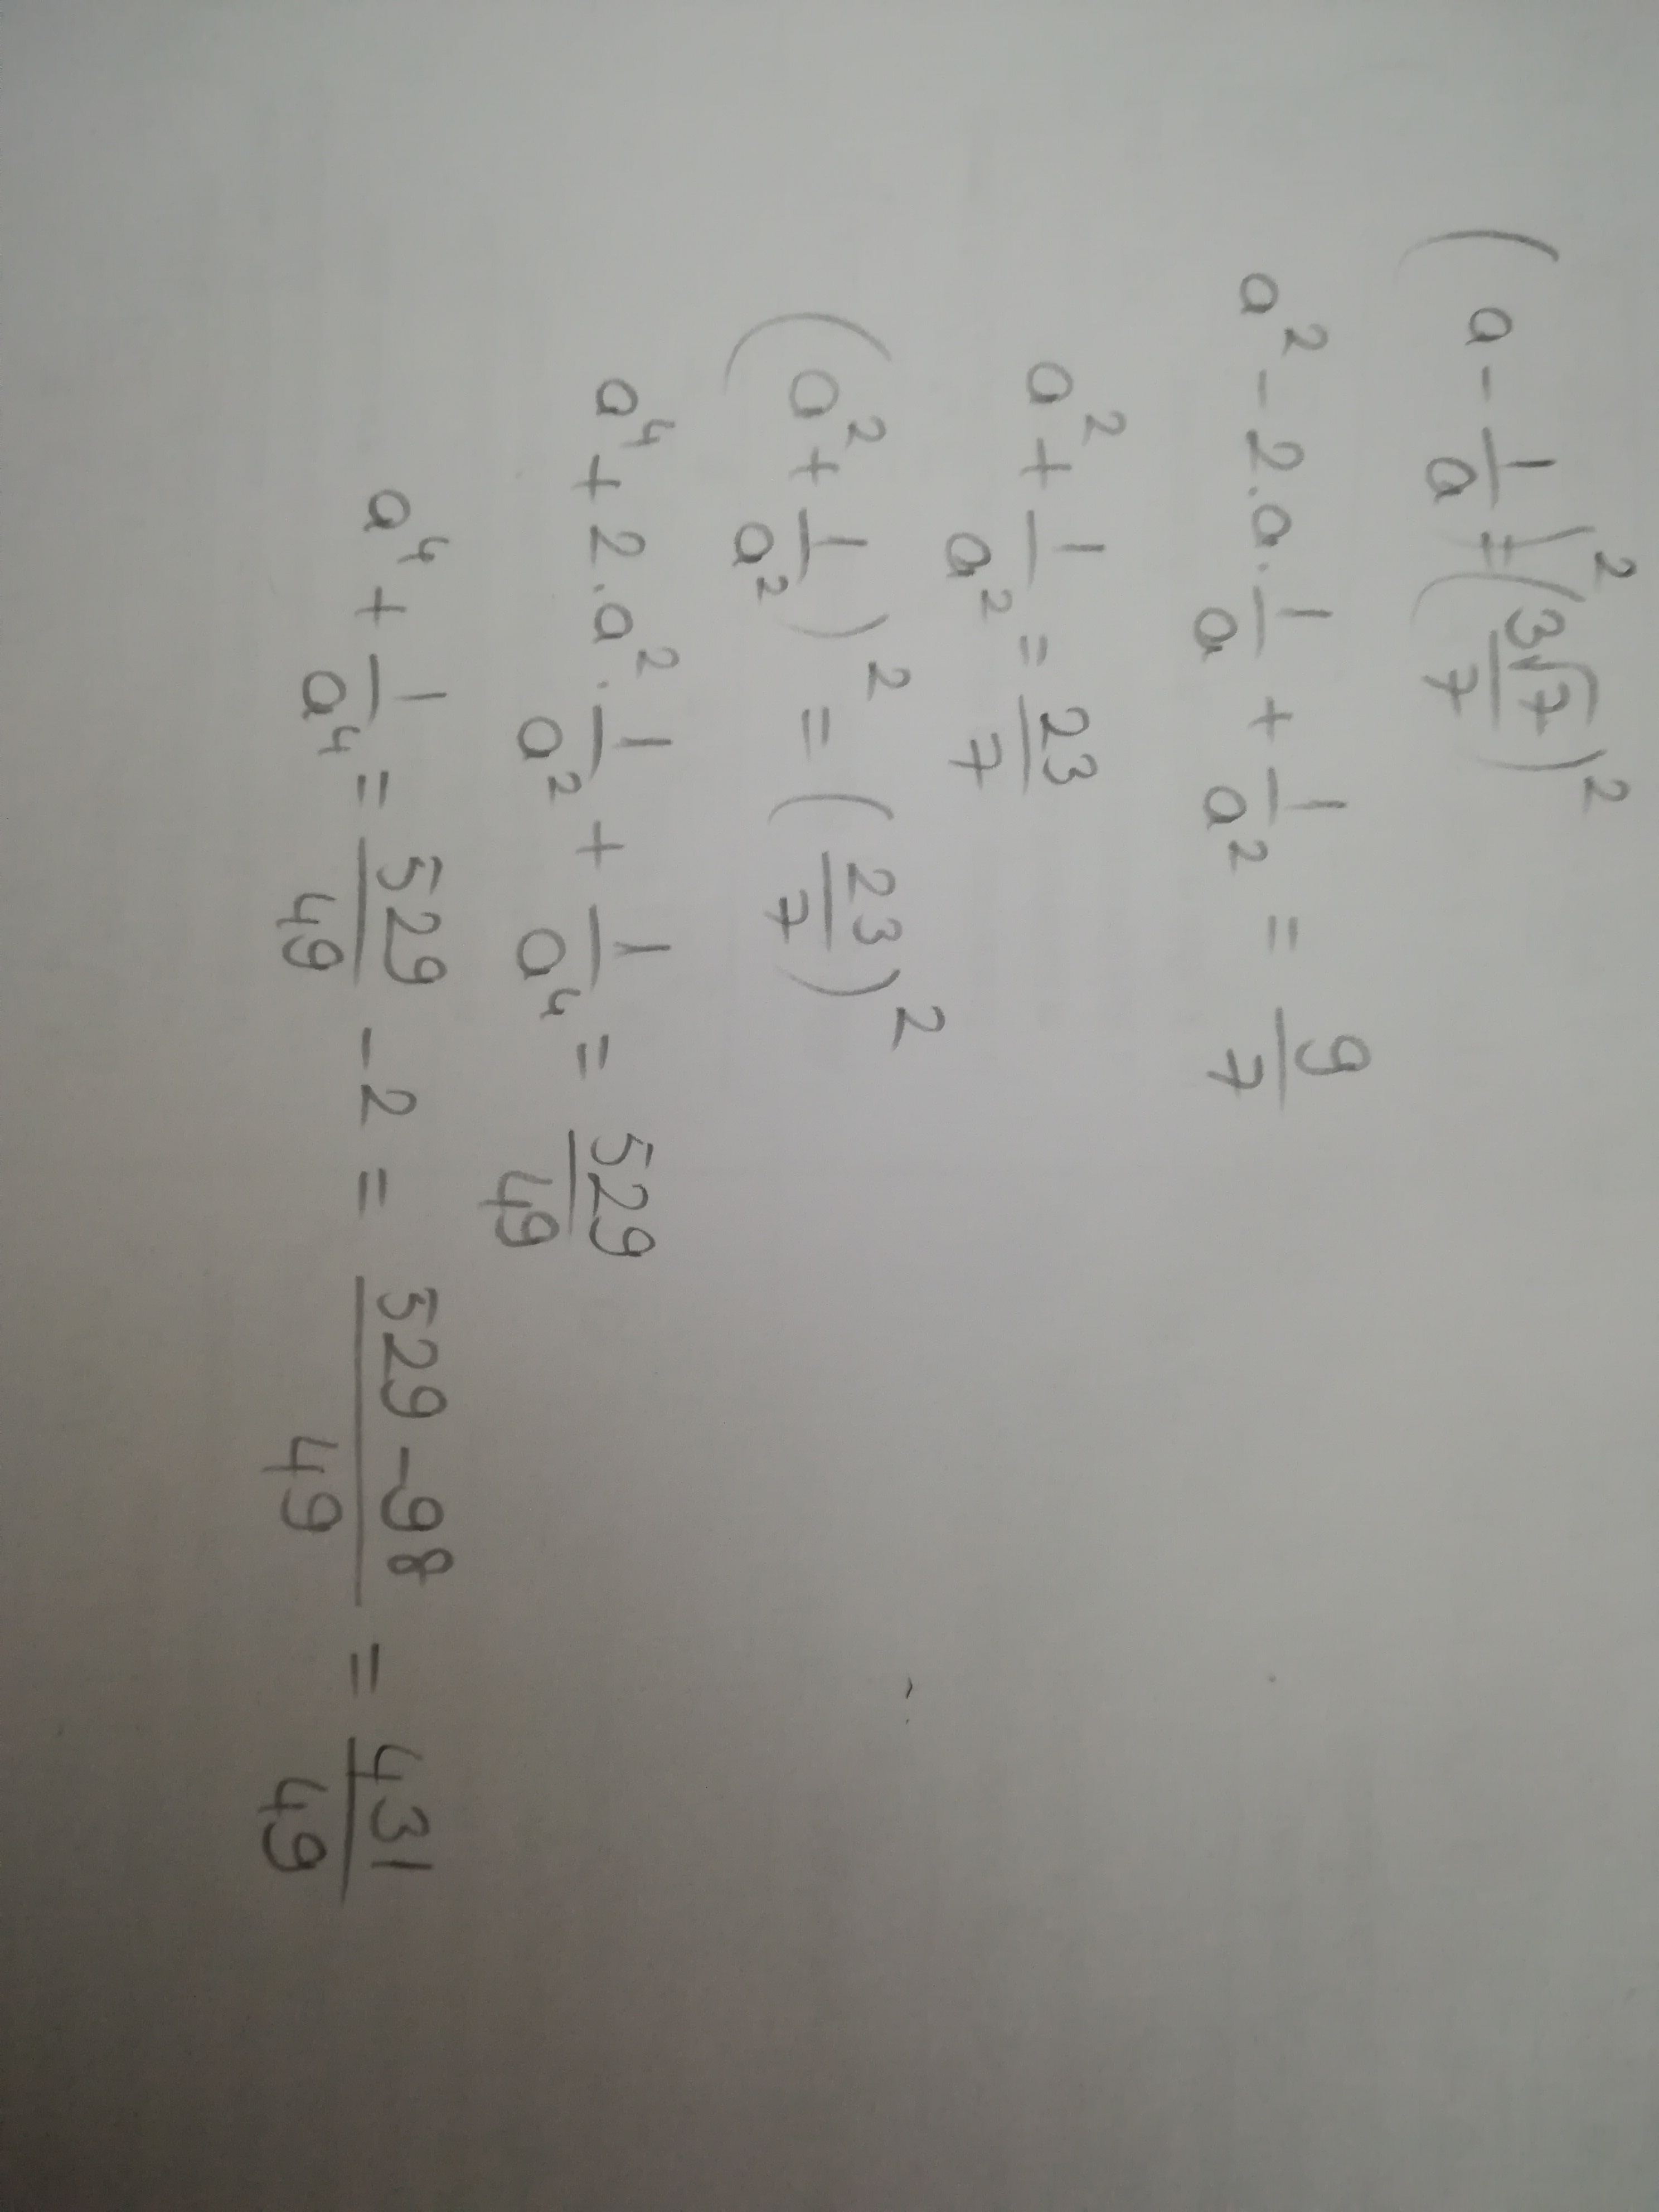 (a - 1/a)² = (3√7/7)²
a² - 2·a·1/a + 1/a² = 9/7
a² + 1/a² = 23/7
(a² + 1/a²)² = (23/7)²
a⁴ + 2·a²·1/a² + 1/a⁴ = 529/49
a⁴ + 1/a⁴ = 529/49 - 2 = (529-98)/49 = 431/49